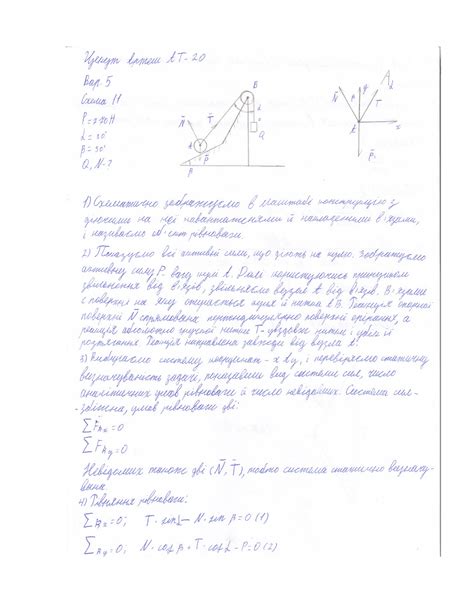 АТ-20
Вар. 5
Схема 11
P=220Н
β=30°
Q, N-?
B
T̄
N̄
A
P̄
β
α
Q
N̄
y
T̄
α
A
x
P̄
1) Схематично зображуємо в масштабі конструкцію з
діючими на неї навантаженнями й накладеними в'язями,
і називаємо рівноваги.
2) Показуємо всі активні сили, що діють на кулю. Зображуємо
активну силу P̄ вагу кулі А. Далі користуючись принципом
звільнення від в'язів, звільняємо вузол А від в'язів. В'язями
є поверхня на яку спирається куля й нитка АВ. Реакція опорної
поверхні N̄ спрямована перпендикулярно поверхні обпирання, а
реакція абсолютно гнучкої нитки T̄ - уздовж нитки і
розтягнення. Реакція направлена завжди від вузла А.
3) Вибираємо систему координат - x і y, і перевіряємо статичну
визначуваність задачі, вид системи сил, число
аналітичних умов рівноваги й число невідомих. Система
збіжна, умов рівноваги дві:
∑Fkx=0
∑Fky=0
Невідомих також дві (N̄, T̄), тобто система статично визначу-
вана.
4) Рівняння рівноваги:
∑Fkx=0; T·sinα-N·sin β=0 (1)
∑Fky=0; N·cosβ+T·cosα-P=0 (2)